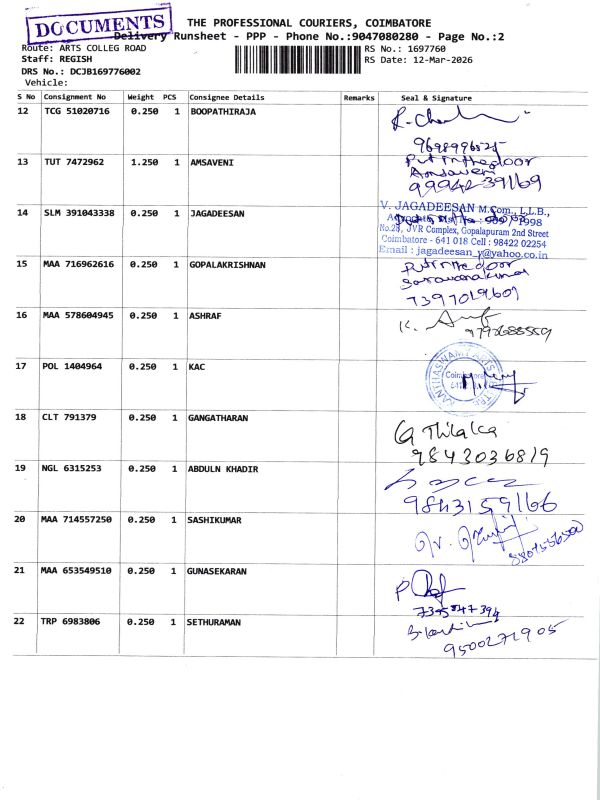 DOCUMENTS
THE PROFESSIONAL COURIERS, COIMBATORE
Delivery Runsheet - PPP - Phone No.:9047080280 - Page No.:2
Route: ARTS COLLEG ROAD
RS No.: 1697760
Staff: REGISH
RS Date: 12-Mar-2026
DRS No.: DCJB169776002
Vehicle:
S No Consignment No Weight PCS Consignee Details Remarks Seal & Signature
12 TCG 51020716 0.250 1 BOOPATHIRAJA
13 TUT 7472962 1.250 1 AMSAVENI
Put in the door
Amsaveni
9994239169
14 SLM 391043338 0.250 1 JAGADEESAN
V. JAGADEESAN M.Com., L.L.B.,
No.28, JVR Complex, Gopalapuram 2nd Street
Coimbatore - 641 018 Cell : 98422 02254
Email : jagadeesan_y@yahoo.co.in
15 MAA 716962616 0.250 1 GOPALAKRISHNAN
Put in the door
7397019607
16 MAA 578604945 0.250 1 ASHRAF
17 POL 1404964 0.250 1 KAC
18 CLT 791379 0.250 1 GANGATHARAN
G Thilaka
9843036819
19 NGL 6315253 0.250 1 ABDULN KHADIR
9843159166
20 MAA 714557250 0.250 1 SASHIKUMAR
21 MAA 653549510 0.250 1 GUNASEKARAN
22 TRP 6983806 0.250 1 SETHURAMAN
9500271905